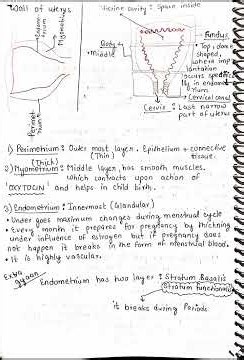 Wall of uterus
Uterine cavity : Space inside
Endometrium
Myometrium
Perimetrium
Body
• Middle
Fundus
• Top, dome
shaped,
where imp
lantation
occurs specific
ly in endomet
rium
Cervical canal
Cervix : Last narrow
part of uterus
1) Perimetrium : Outer most layer. Epithelium + connective
(Thin) tissue.
(Thick)
2) Myometrium : Middle layer, has smooth muscles,
which contracts upon action of
'OXYTOCIN' and helps in child birth.
3) Endometrium : Innermost (Glandular)
• Under goes maximum changes during menstrual cycle
• Every month it prepares for pregnancy by thickning
under influence of estrogen but if pregnancy does
not happen it breaks in the form of menstrual blood.
• It is highly vascular.
Extra
gyaan
Endometrium has two layer : Stratum Basalis
Stratum functionalis
it breaks during Periods